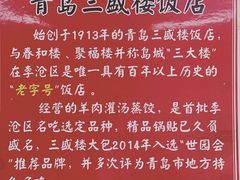 青岛三盛楼饭店
始创于1913年的青岛三盛楼饭店,
与春和楼、聚福楼并称岛城“三大楼”
在李沧区是唯一具有百年以上历史的
“老字号”饭店。
经营的羊肉灌汤蒸饺,是首批李
沧区名吃选定品种,精品锅贴已久负
盛名,三盛楼大包2014年入选“世园会
”推荐品牌,并多次评为青岛市地方特